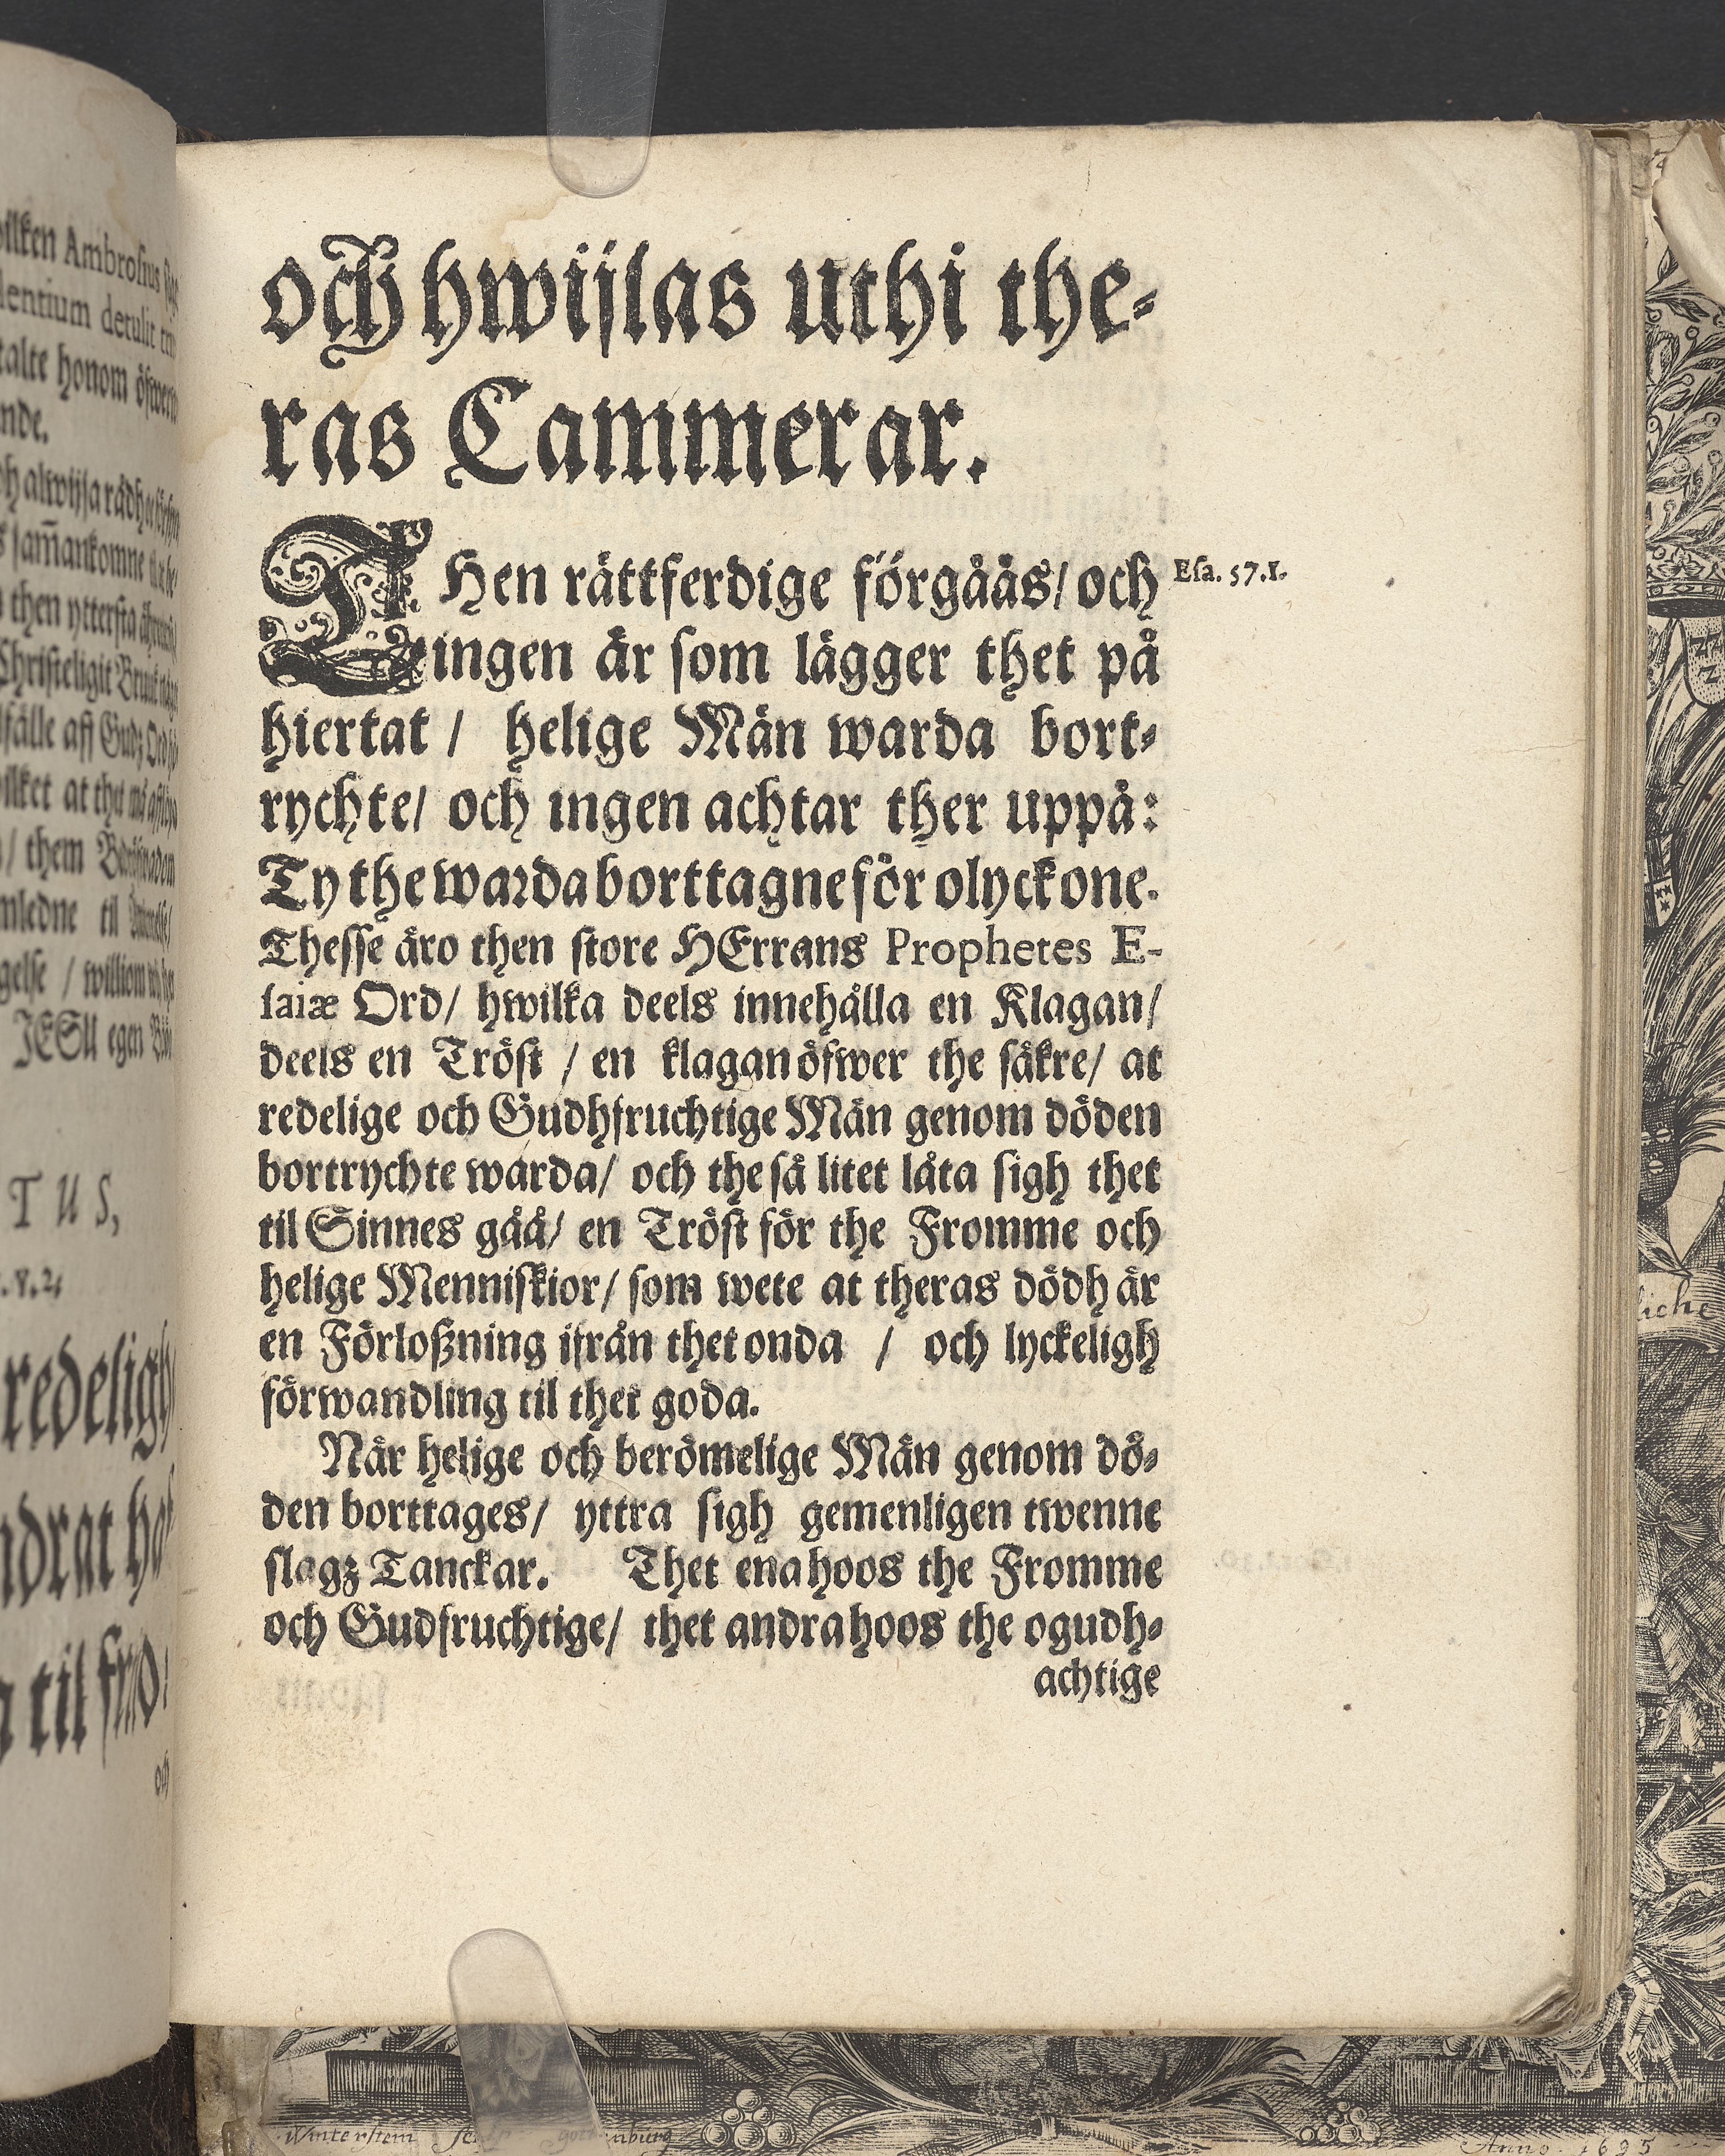 och hwijlas uthi the-
ras Cammerar.
THen rättferdige förgåås/ och
ingen är som lägger thet på
hiertat / helige Män warda bort-
rychte/ och ingen achtar ther uppå:
Ty the warda borttagne för olyckone.
Thesse äro then store HErrans Prophetes E-
saiæ Ord/ hwilka deels innehålla en Klagan/
deels en Tröst / en klagan öfwer the säkre/ at
redelige och Gudhfruchtige Män genom döden
bortrychte warda/ och the så litet låta sigh thet
til Sinnes gåå/ en Tröst för the Fromme och
helige Menniskior/ som wete at theras dödh är
en Förloßning ifrån thet onda / och lyckeligh
förwandling til thet goda.
När helige och berömelige Män genom dö-
den borttages/ yttra sigh gemenligen twenne
slagz Tanckar. Thet ena hoos the Fromme
och Gudfruchtige/ thet andra hoos the ogudh-
achtige
Esa. 57.1.
ilken Ambrosius
lentium detulit
talte honom
nde.
sam̃ankomne
then yttersta
Christeligit
fälle aff Gudz Ord
ilket at thet
/ them
mledne til
gelse / williom
JESU egen
TUS,
.8.2,
redeligh
ndrat haf
til
och
liche
Winterstein
Anno. 1695